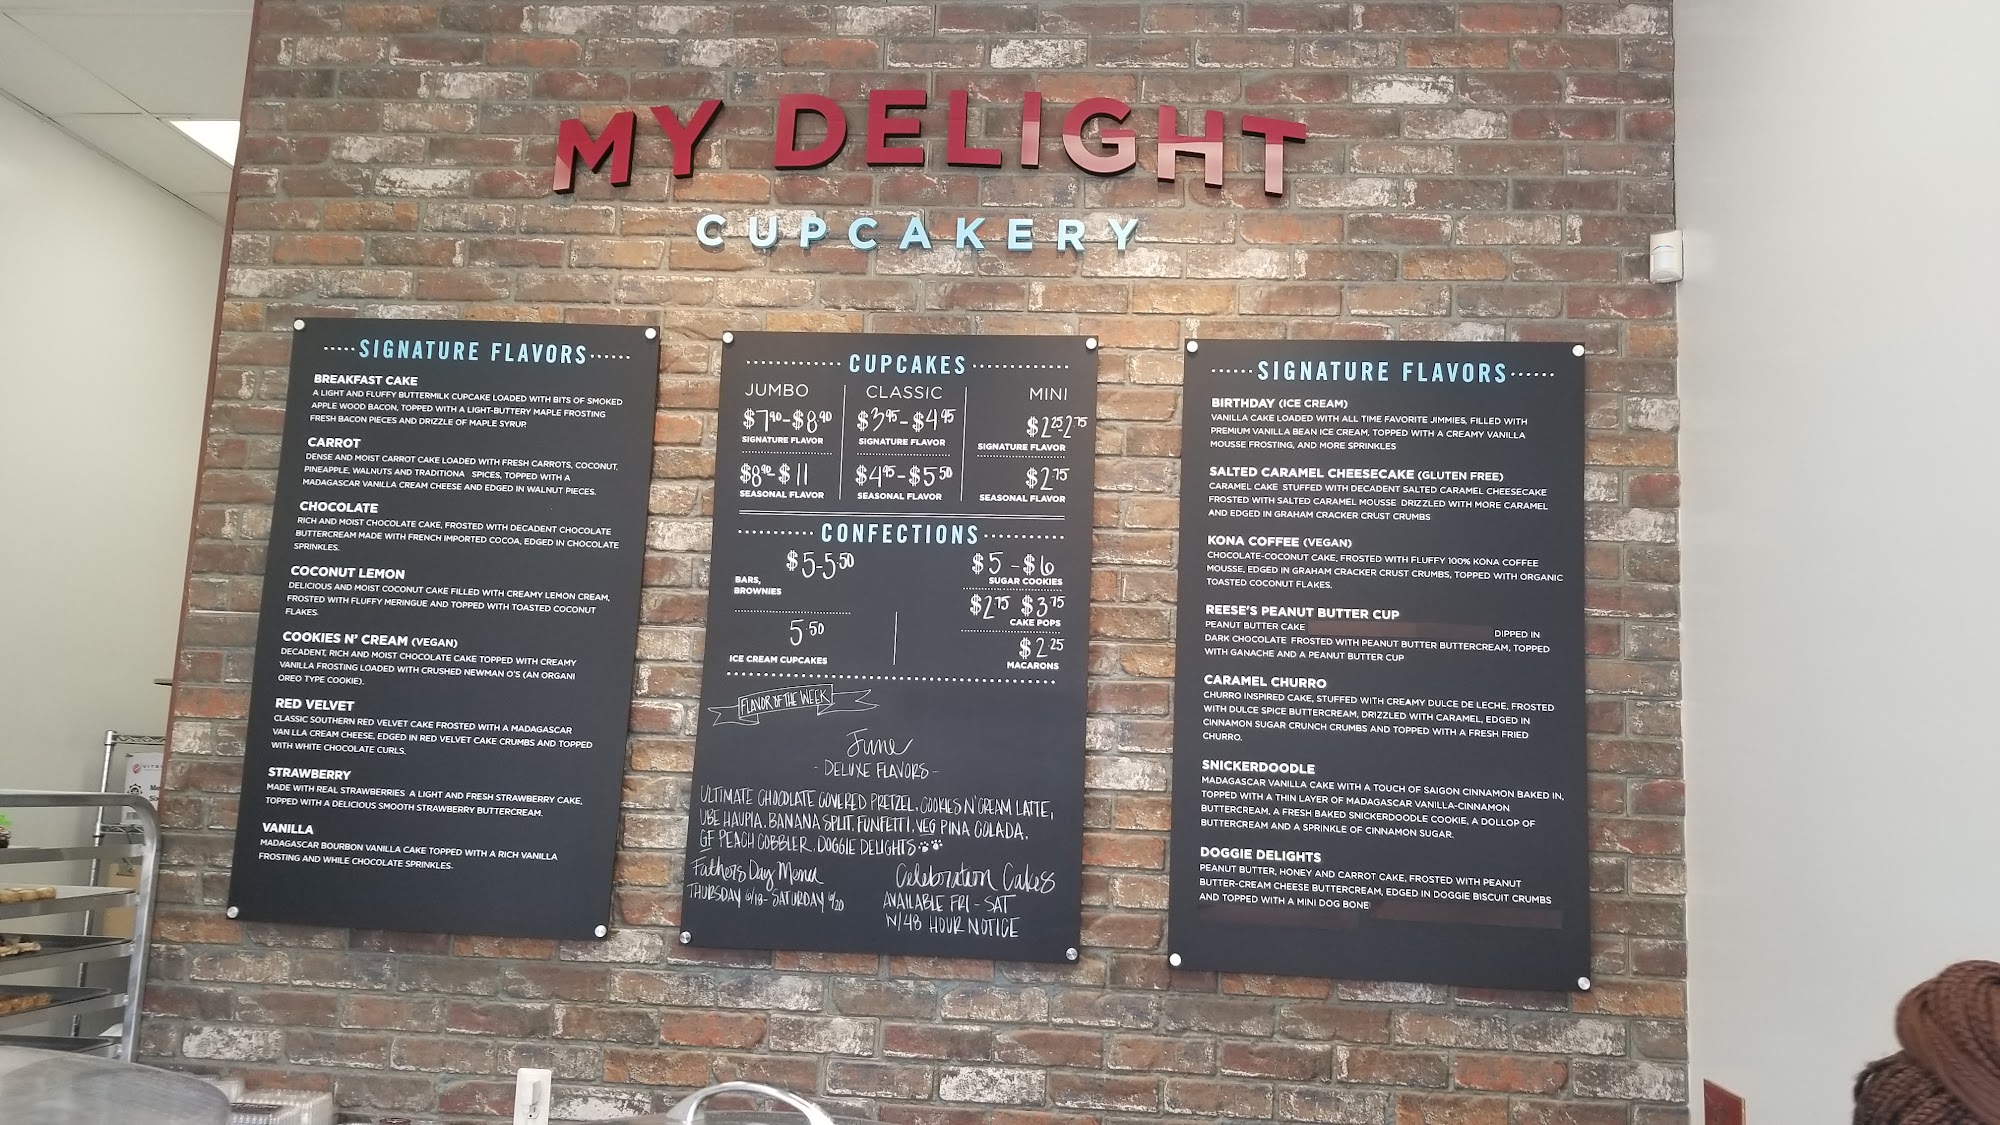 MY DELIGHT
CUPCAKERY
SIGNATURE FLAVORS
BREAKFAST CAKE
A LIGHT AND FLUFFY BUTTERMILK CUPCAKE LOADED WITH BITS OF SMOKED
APPLE WOOD BACON, TOPPED WITH A LIGHT-BUTTERY MAPLE FROSTING
FRESH BACON PIECES AND DRIZZLE OF MAPLE SYRUP.
CARROT
DENSE AND MOIST CARROT CAKE LOADED WITH FRESH CARROTS, COCONUT,
PINEAPPLE, WALNUTS AND TRADITIONA SPICES, TOPPED WITH A
MADAGASCAR VANILLA CREAM CHEESE AND EDGED IN WALNUT PIECES.
CHOCOLATE
RICH AND MOIST CHOCOLATE CAKE, FROSTED WITH DECADENT CHOCOLATE
BUTTERCREAM MADE WITH FRENCH IMPORTED COCOA, EDGED IN CHOCOLATE
SPRINKLES.
COCONUT LEMON
DELICIOUS AND MOIST COCONUT CAKE FILLED WITH CREAMY LEMON CREAM,
FROSTED WITH FLUFFY MERINGUE AND TOPPED WITH TOASTED COCONUT
FLAKES.
COOKIES N' CREAM (VEGAN)
DECADENT, RICH AND MOIST CHOCOLATE CAKE TOPPED WITH CREAMY
VANILLA FROSTING LOADED WITH CRUSHED NEWMAN O'S (AN ORGANI
OREO TYPE COOKIE).
RED VELVET
CLASSIC SOUTHERN RED VELVET CAKE FROSTED WITH A MADAGASCAR
VAN LLA CREAM CHEESE, EDGED IN RED VELVET CAKE CRUMBS AND TOPPED
WITH WHITE CHOCOLATE CURLS.
STRAWBERRY
MADE WITH REAL STRAWBERRIES A LIGHT AND FRESH STRAWBERRY CAKE,
TOPPED WITH A DELICIOUS SMOOTH STRAWBERRY BUTTERCREAM.
VANILLA
MADAGASCAR BOURBON VANILLA CAKE TOPPED WITH A RICH VANILLA
FROSTING AND WHILE CHOCOLATE SPRINKLES.
CUPCAKES
JUMBO CLASSIC MINI
$7.90-$8.90 $3.95-$4.95 $2.25-2.75
SIGNATURE FLAVOR SIGNATURE FLAVOR SIGNATURE FLAVOR
$8.90-$11 $4.95-$5.50 $2.75
SEASONAL FLAVOR SEASONAL FLAVOR SEASONAL FLAVOR
CONFECTIONS
$5-5.50 $5-$6
BARS, BROWNIES SUGAR COOKIES
$2.75 $3.75
CAKE POPS
5.50 $2.25
ICE CREAM CUPCAKES MACARONS
FLAVOR OF THE WEEK
June
- DELUXE FLAVORS -
ULTIMATE CHOCOLATE COVERED PRETZEL, COOKIES N' CREAM LATTE,
UBE HAUPIA, BANANA SPLIT, FUNFETTI, VEG PINA COLADA,
GF PEACH COBBLER, DOGGIE DELIGHTS
Fathers Day Menu
THURSDAY 6/18- SATURDAY 6/20
Celebration Cakes
AVAILABLE FRI - SAT
W/48 HOUR NOTICE
SIGNATURE FLAVORS
BIRTHDAY (ICE CREAM)
VANILLA CAKE LOADED WITH ALL TIME FAVORITE JIMMIES, FILLED WITH
PREMIUM VANILLA BEAN ICE CREAM, TOPPED WITH A CREAMY VANILLA
MOUSSE FROSTING, AND MORE SPRINKLES
SALTED CARAMEL CHEESECAKE (GLUTEN FREE)
CARAMEL CAKE STUFFED WITH DECADENT SALTED CARAMEL CHEESECAKE
FROSTED WITH SALTED CARAMEL MOUSSE DRIZZLED WITH MORE CARAMEL
AND EDGED IN GRAHAM CRACKER CRUST CRUMBS
KONA COFFEE (VEGAN)
CHOCOLATE-COCONUT CAKE, FROSTED WITH FLUFFY 100% KONA COFFEE
MOUSSE, EDGED IN GRAHAM CRACKER CRUST CRUMBS, TOPPED WITH ORGANIC
TOASTED COCONUT FLAKES.
REESE'S PEANUT BUTTER CUP
PEANUT BUTTER CAKE DIPPED IN
DARK CHOCOLATE FROSTED WITH PEANUT BUTTER BUTTERCREAM, TOPPED
WITH GANACHE AND A PEANUT BUTTER CUP
CARAMEL CHURRO
CHURRO INSPIRED CAKE, STUFFED WITH CREAMY DULCE DE LECHE, FROSTED
WITH DULCE SPICE BUTTERCREAM, DRIZZLED WITH CARAMEL, EDGED IN
CINNAMON SUGAR CRUNCH CRUMBS AND TOPPED WITH A FRESH FRIED
CHURRO.
SNICKERDOODLE
MADAGASCAR VANILLA CAKE WITH A TOUCH OF SAIGON CINNAMON BAKED IN,
TOPPED WITH A THIN LAYER OF MADAGASCAR VANILLA-CINNAMON
BUTTERCREAM, A FRESH BAKED SNICKERDOODLE COOKIE, A DOLLOP OF
BUTTERCREAM AND A SPRINKLE OF CINNAMON SUGAR.
DOGGIE DELIGHTS
PEANUT BUTTER, HONEY AND CARROT CAKE, FROSTED WITH PEANUT
BUTTER-CREAM CHEESE BUTTERCREAM, EDGED IN DOGGIE BISCUIT CRUMBS
AND TOPPED WITH A MINI DOG BONE